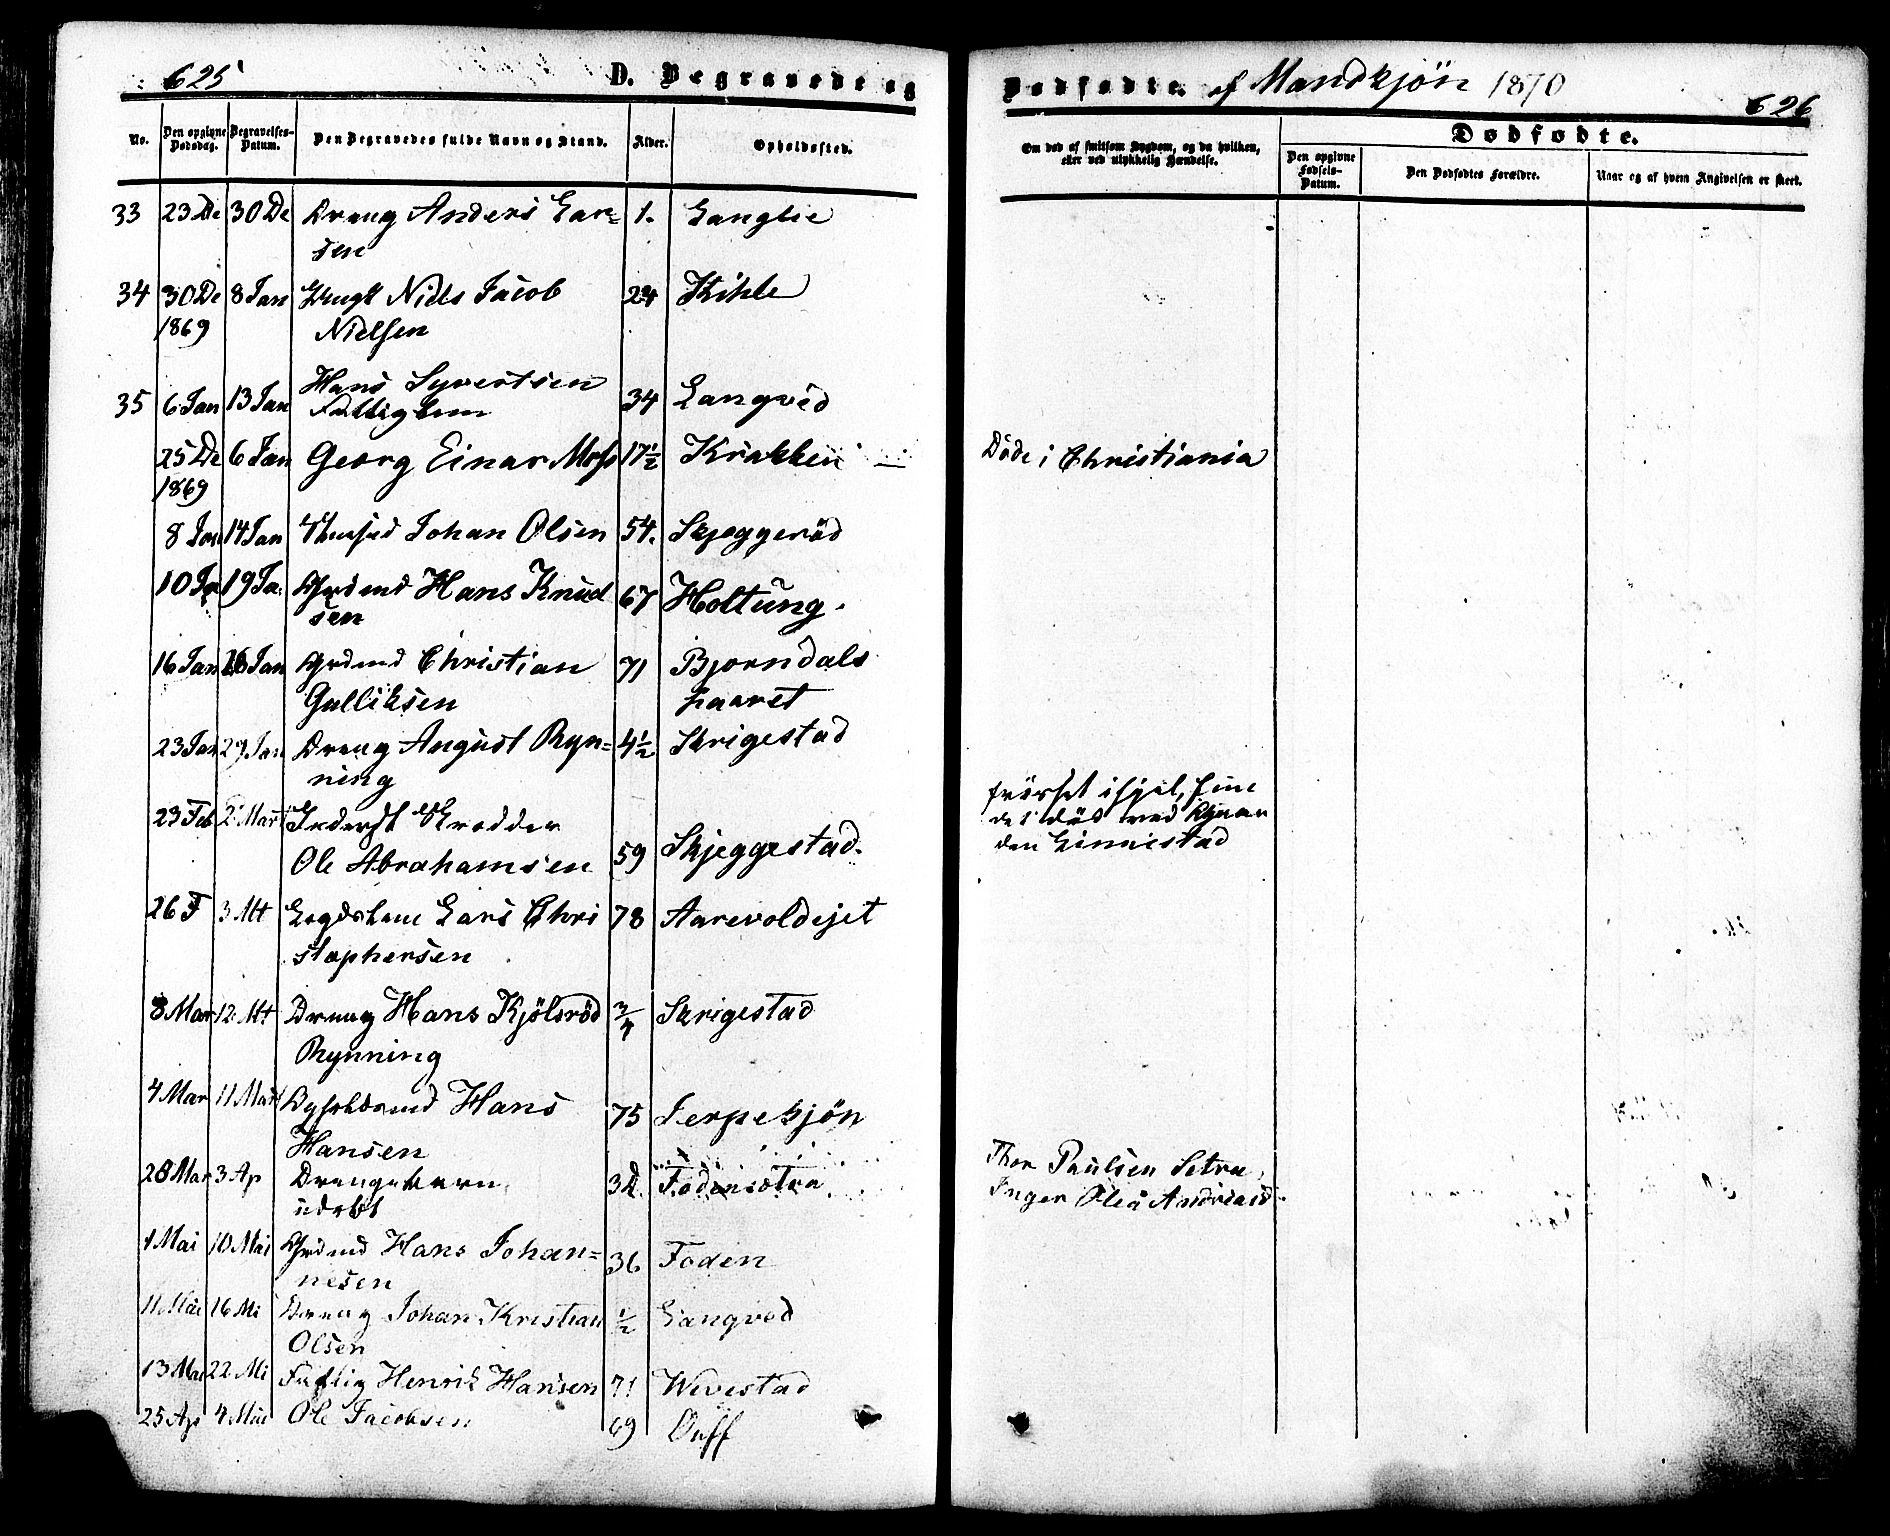 625
D. Begravede og
No.
Den opgivne
Dødsdag.
Begravelses-
Datum.
Den Begravedes fulde Navn og Stand.
Alder.
Opholdssted.
33 23 De 30 De Dreng Anders Lar=
sen
1. Langlie
34 30 De 8 Jan Ungk Niels Jacob 24 Kihle
1869 Nielsen
Hans Syvertsen
35 6 Jan 13 Jan Fattiglem 34 Langvéd
25 De 6 Jan Georg Einar Moss 17½ Kråkken
1869
8 Jan 14 Jan Johan Olsen 54. Skjeggeröd
10 Ja 19 Ja. Grdmd Hans Knud 67 Holtung.
sen
16 Jan Jan Grdmd Christian 71 Bjorndals
Gulliksen haaret
23 Jan 29 Jan Dreng August Ryn= 4½ Skrigestad
ning
23 Feb 2 Mart Inderst
Ole Abrahamsen 59 Skjeggestad.
26 F 3 Mt Legdslem Lars Chri 78 Aarevoldejet
stophersen
8 Mar 12. Mt Dreng Hans Kjölsröd ¾ Skrigestad
Rynning
4 Mar 11 Mart Hans 75 Jerpekjön
Hansen
28 Mar 3 Ap Drengebarn 3d. Fodensætra
udøbt
1 Mai 10 Mai Grdmd Hans Johan= 36 Foden
nesen
11 Mai 16 Mi Dreng Johan Kristian ½ Langved
Olsen
13 Mai 22 Mi Fattig Henrik Hansen 71 Wevestad
25 Ap 4 Mai Ole Jacobsen 69 Ouff
Dødfødte af Mandkjön 1870
626
Om død af smitsom Sygdom, og da hvilken,
eller ved ulykkelig Hændelse.
Dødfødte.
Den opgivne
Fødsels-
Datum.
Den Dødfødtes Forældre.
Naar og af hvem Angivelsen er skeet.
Döde i Christiania
frösset ihjel, fun
det död ved
den Linnestad
Thor Paulsen Setra
Inger Olea Andreasd.